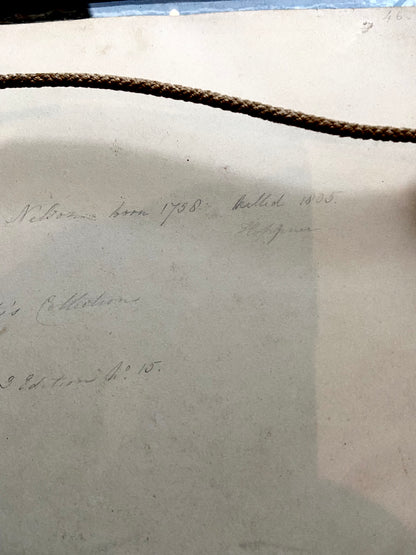 46
Nelson born 1758. killed 1805.
Hoppner
's Collection
3 Edition No. 15.